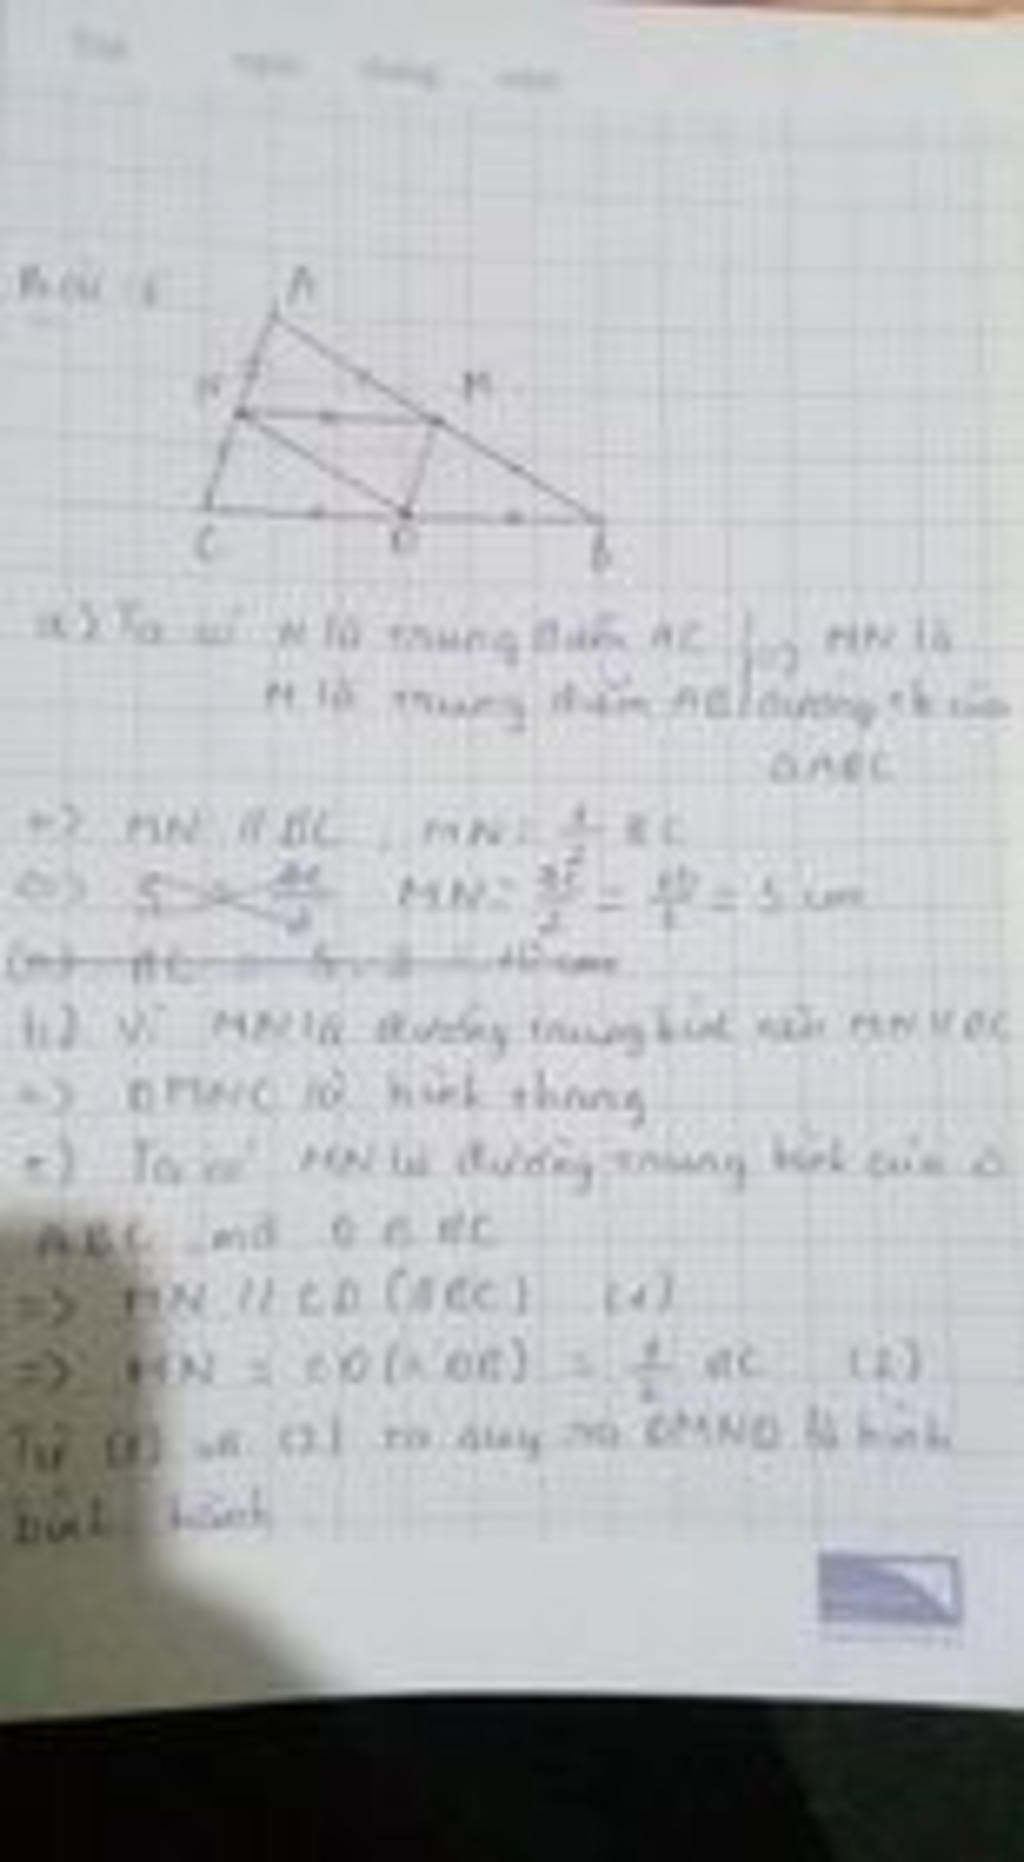 A
M
N
C D B
a) Ta có N là trung điểm AC } => MN là
M là trung điểm AB } đường tb của
ΔABC
=> MN // BC, MN = 1/2 BC
MN = BC/2 = 10/2 = 5 cm
b) Vì MN là đường trung bình nên MN // BC
=> BMNC là hình thang
c) Ta có MN là đường trung bình của Δ
ABC mà D ∈ BC
=> MN // CD (∈ BC) (1)
=> MN = CD (= DB) = 1/2 BC (2)
Từ (1) và (2) ta suy ra là hình
bình hành